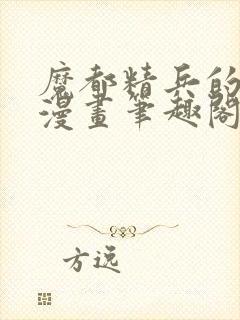 魔都精兵的
漫畫筆趣閣
方逸